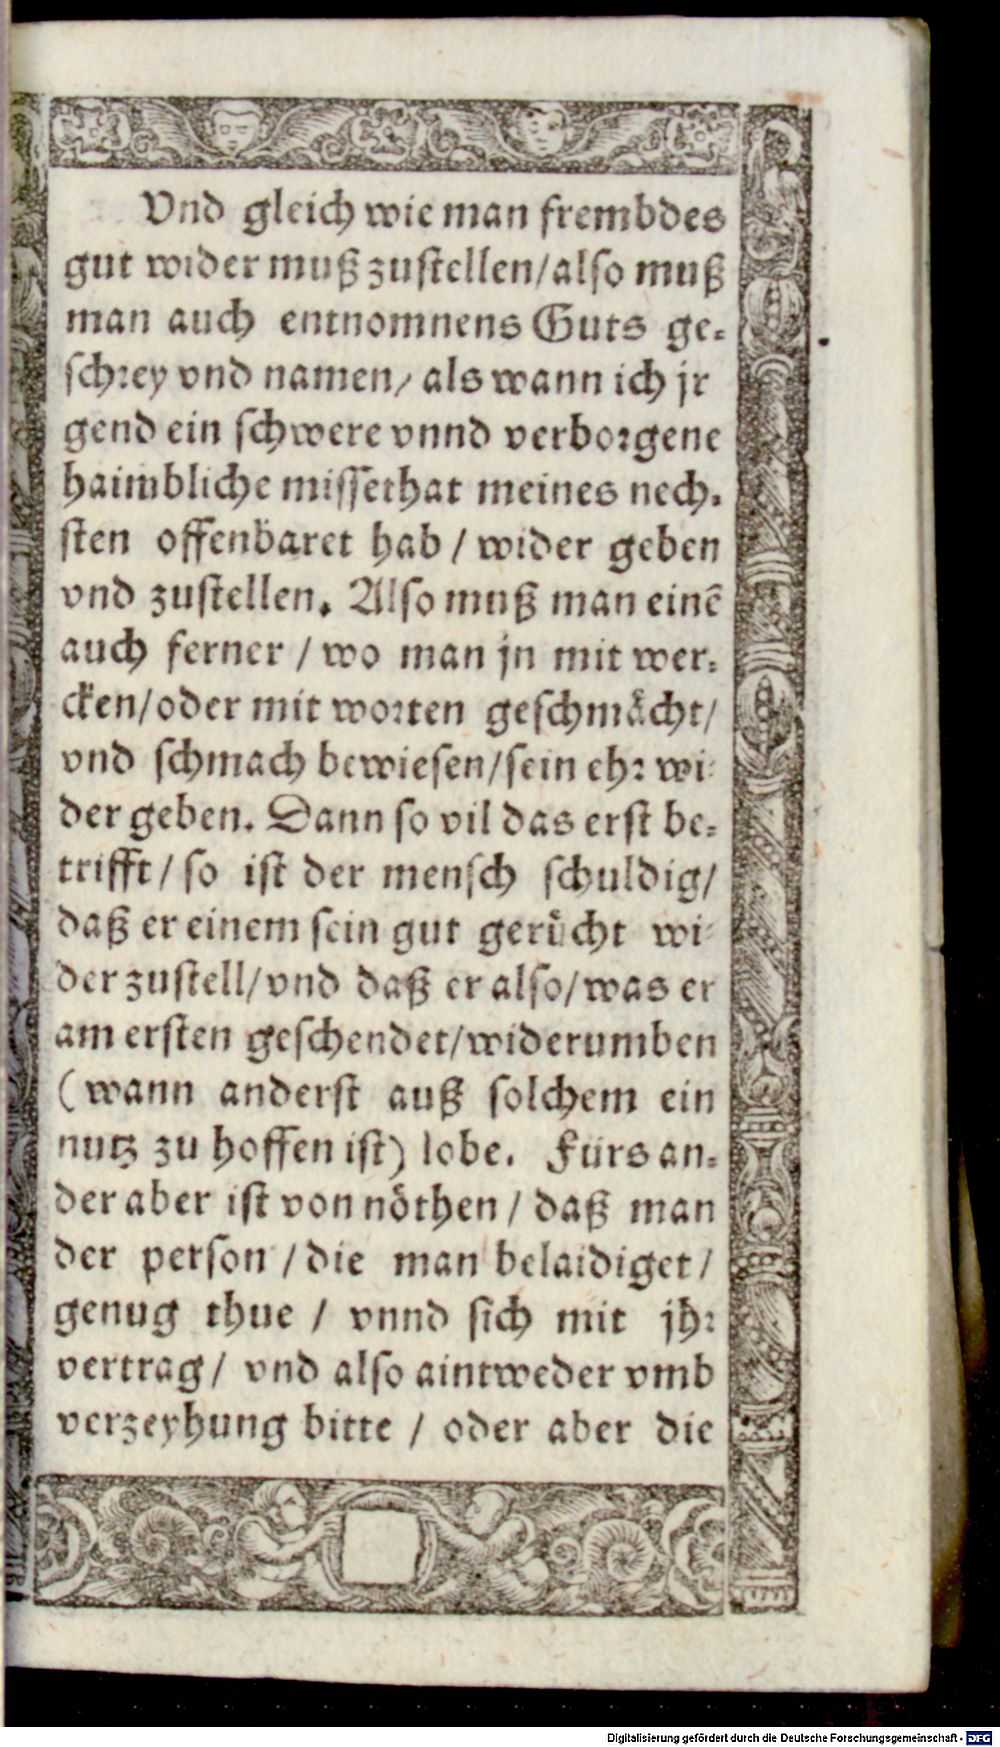 Vnd gleich wie man frembdes
gut wider muß zustellen/also muß
man auch entnomnens Guts ge-
schrey vnd namen/ als wann ich jr
gend ein schwere vnnd verborgene
haimbliche missethat meines nech-
sten offenbaret hab / wider geben
vnd zustellen. Also muß man einē
auch ferner / wo man jn mit wer-
cken/oder mit worten geschmächt/
vnd schmach bewiesen/sein ehr wi-
der geben. Dann so vil das erst be-
trifft/ so ist der mensch schuldig/
daß er einem sein gut gerücht wi-
der zustell/vnd daß er also/was er
am ersten geschendet/widerumben
(wann anderst auß solchem ein
nutz zu hoffen ist) lobe. Fürs an-
der aber ist von nöthen / daß man
der person / die man belaidiget/
genug thue / vnnd sich mit jhr
vertrag/ vnd also aintweder vmb
verzeyhung bitte / oder aber die
Digitalisierung gefördert durch die Deutsche Forschungsgemeinschaft - DFG